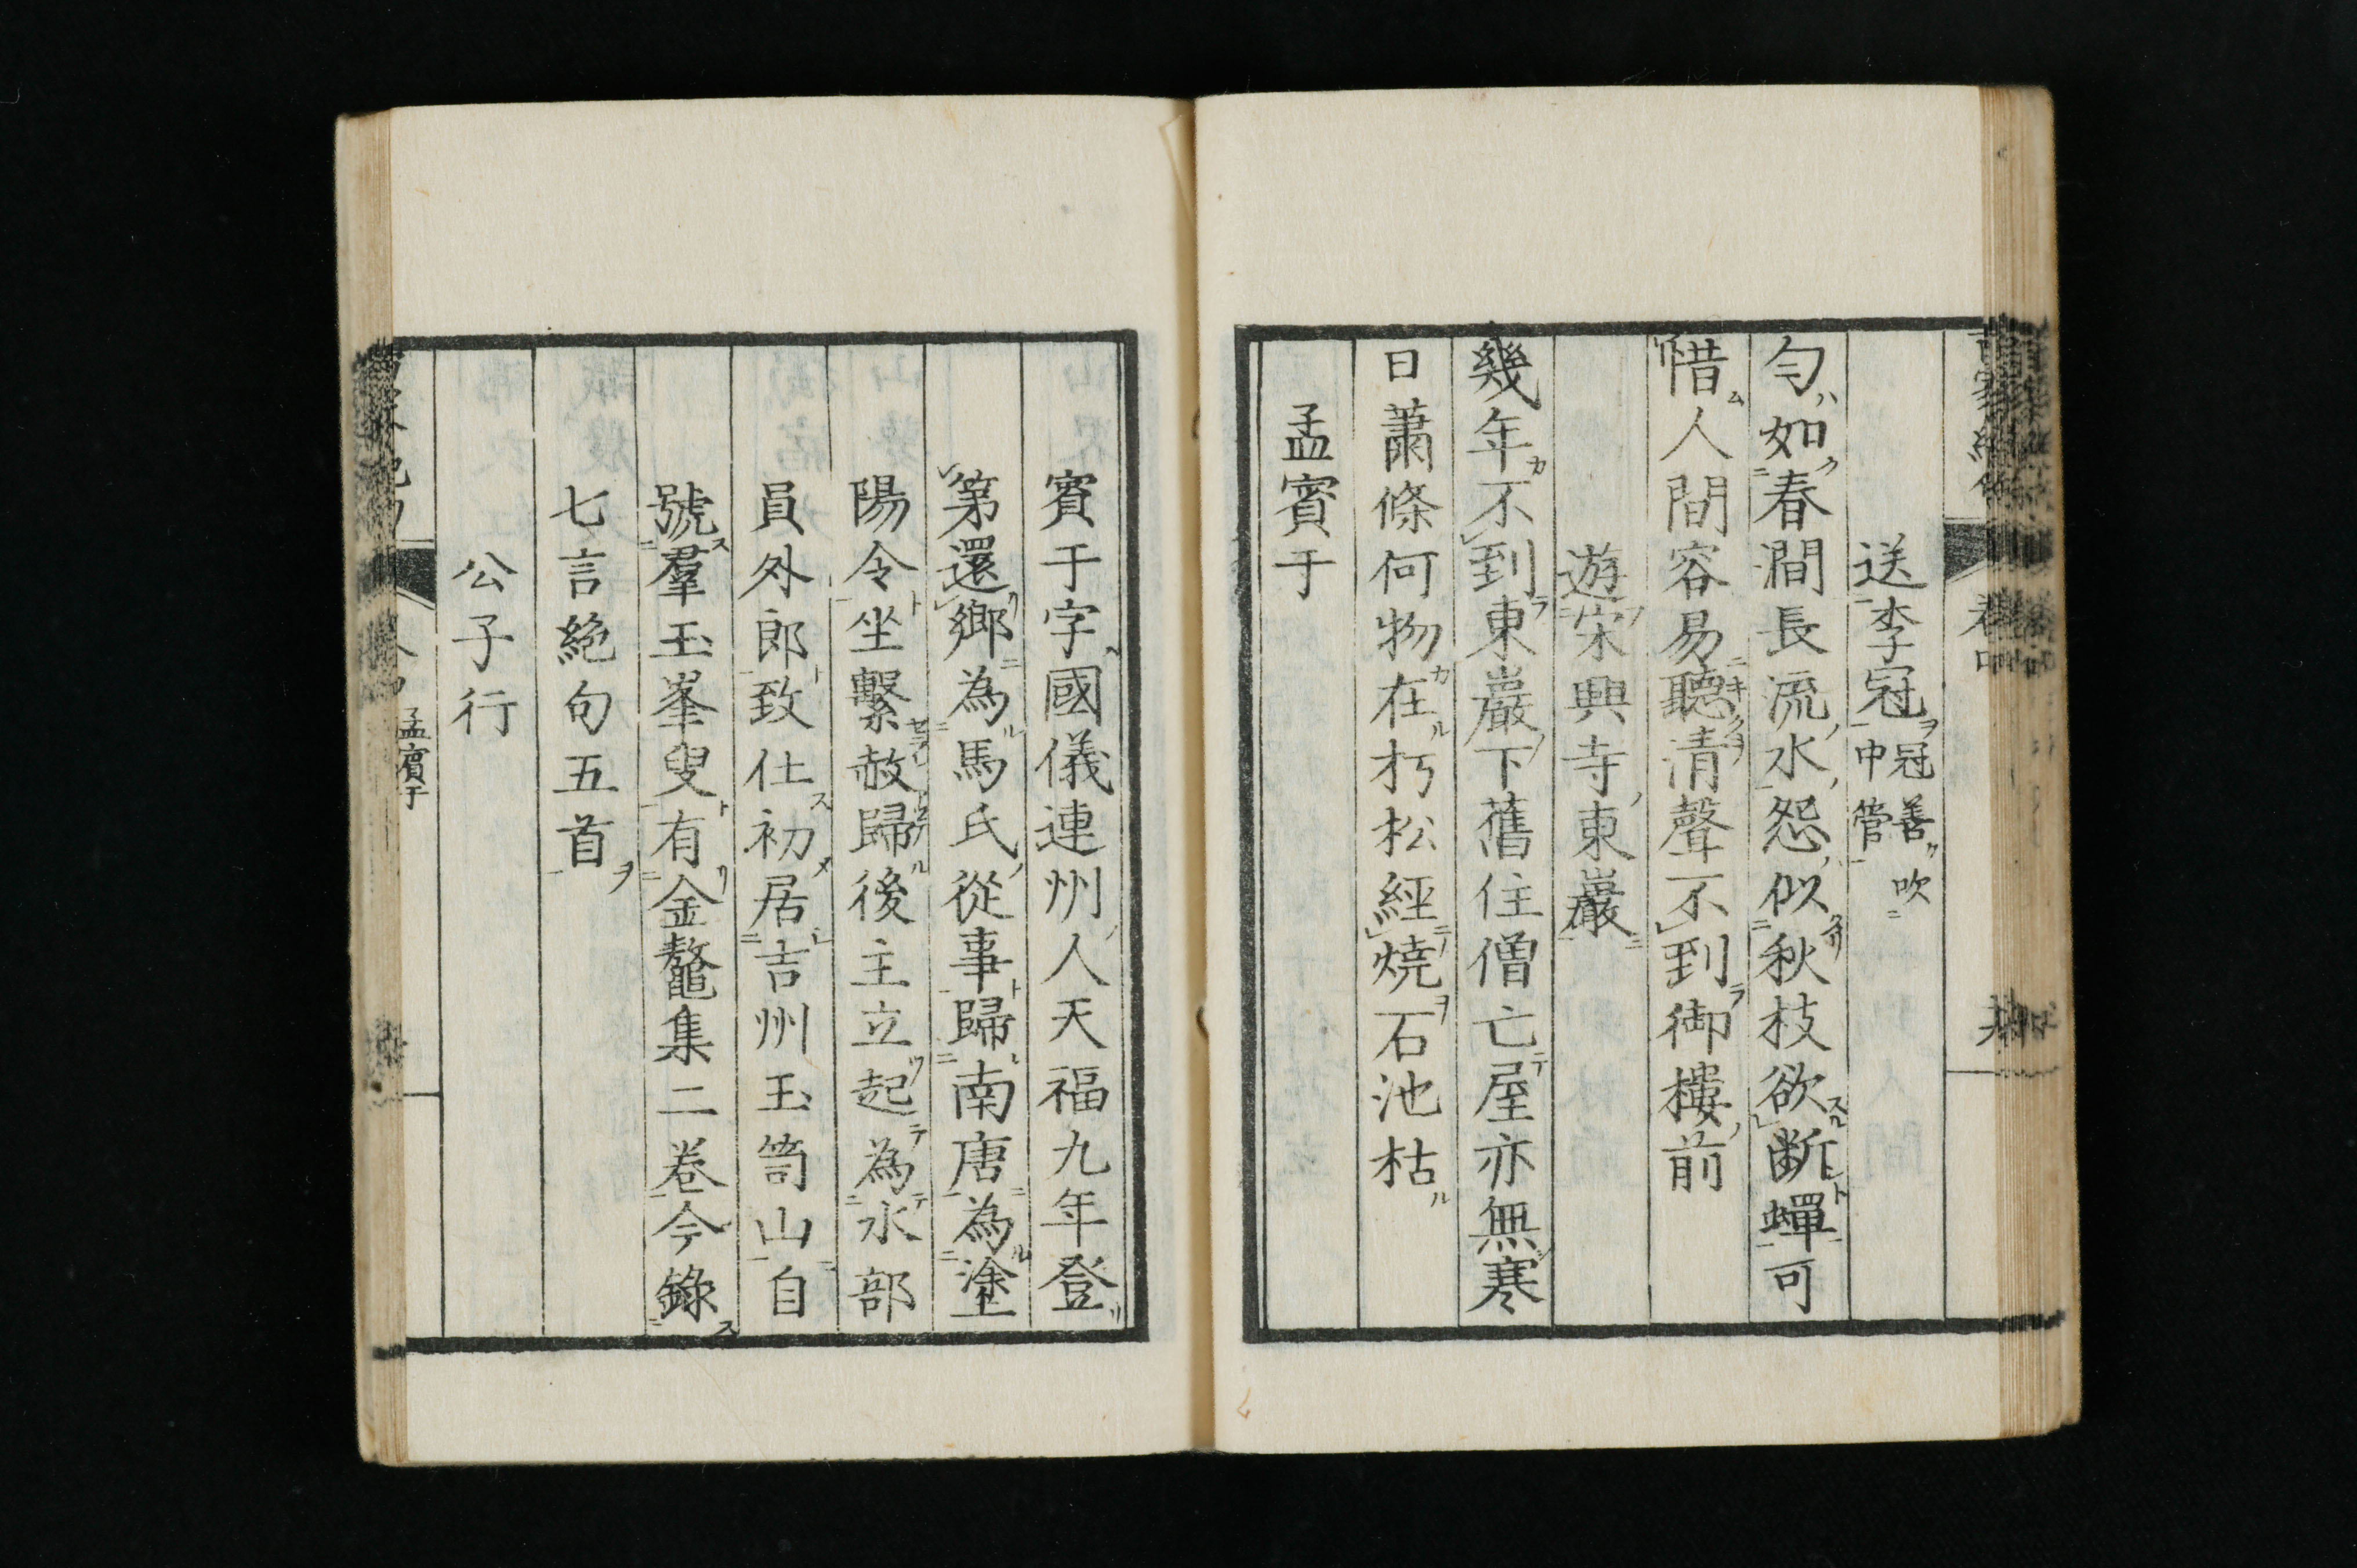 送李冠冠善吹中管
勻如春澗長流水怨似秋枝欲斷蟬可
惜人間容易聽清聲不到御樓前
遊宋興寺東巖
幾年不到東巖下舊住僧亡屋亦無寒
日蕭條何物在朽松經燒石池枯
孟賓于
賓于字國儀連州人天福九年登
第還鄉為馬氏從事歸南唐為塗
陽令坐繫赦歸後主立起為水部
員外郎致仕初居吉州玉笥山自
號羣玉峯叟有金鼇集二卷今錄
七言絕句五首
公子行
孟賓于